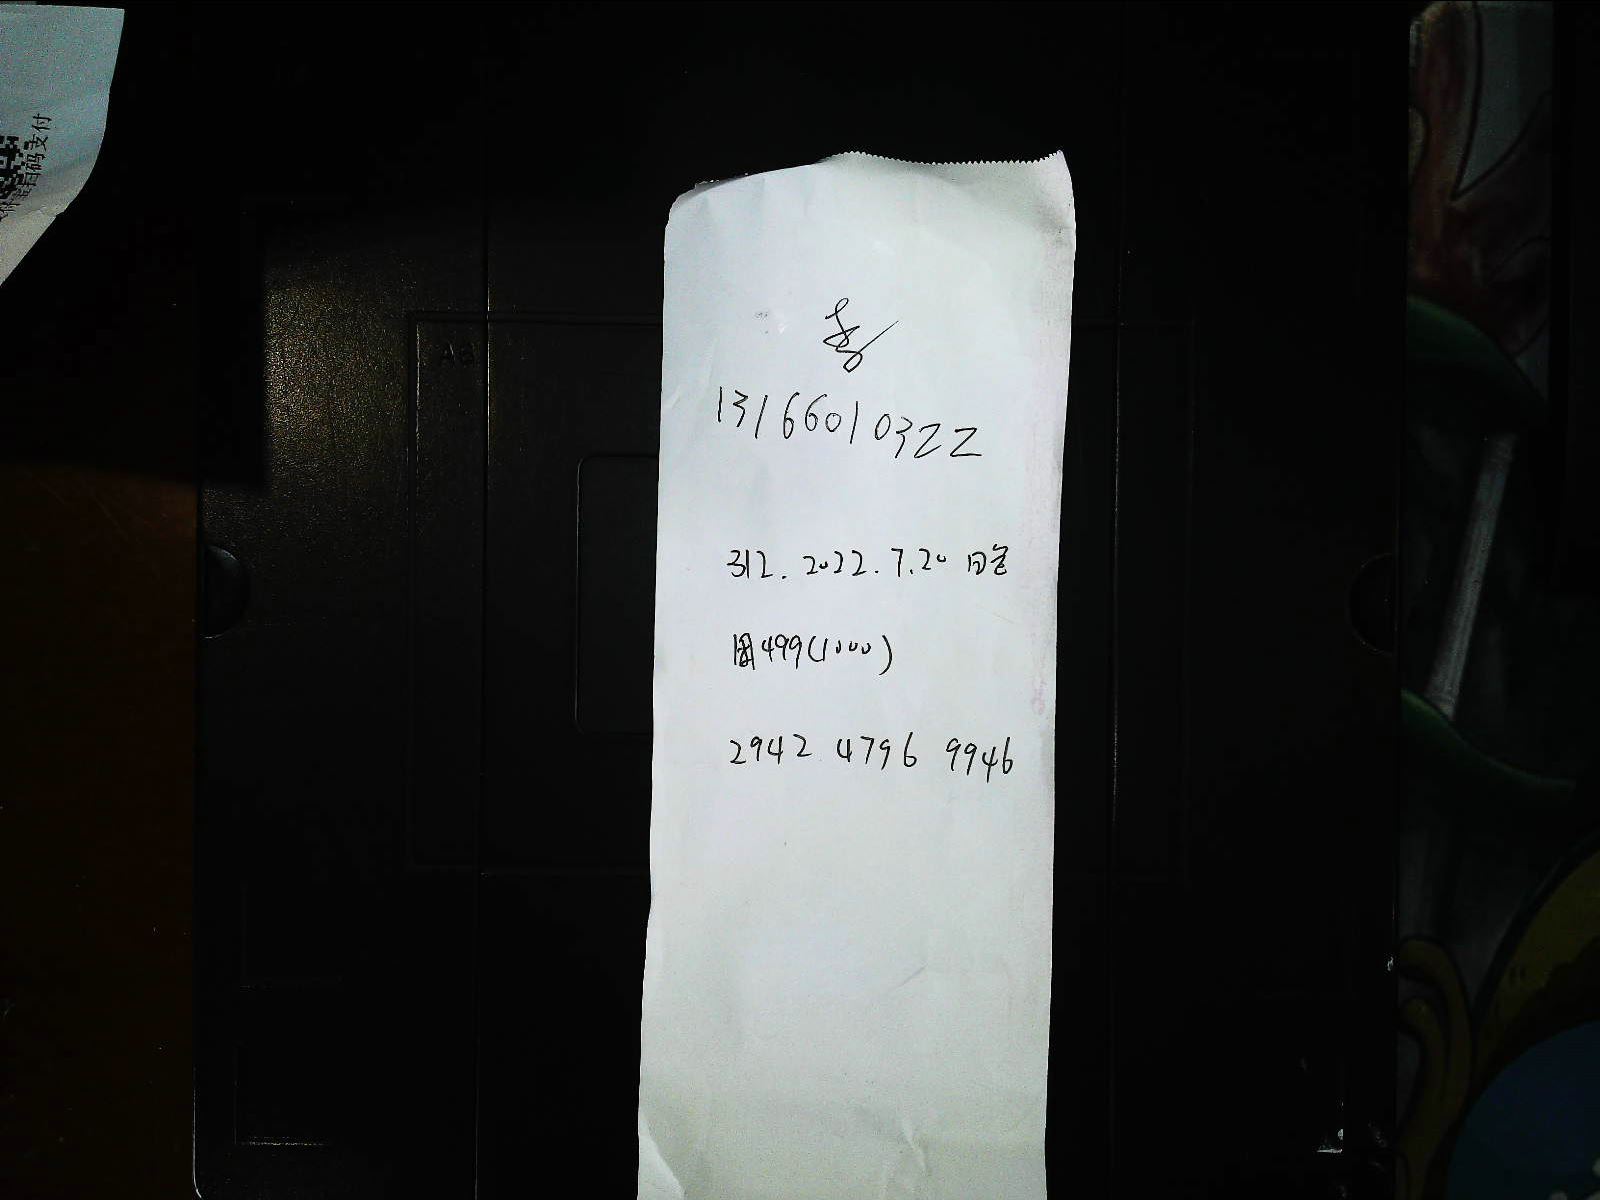 扫码支付
13166010322
312. 2022.7.20 白
团499(1000)
2942 4796 9946